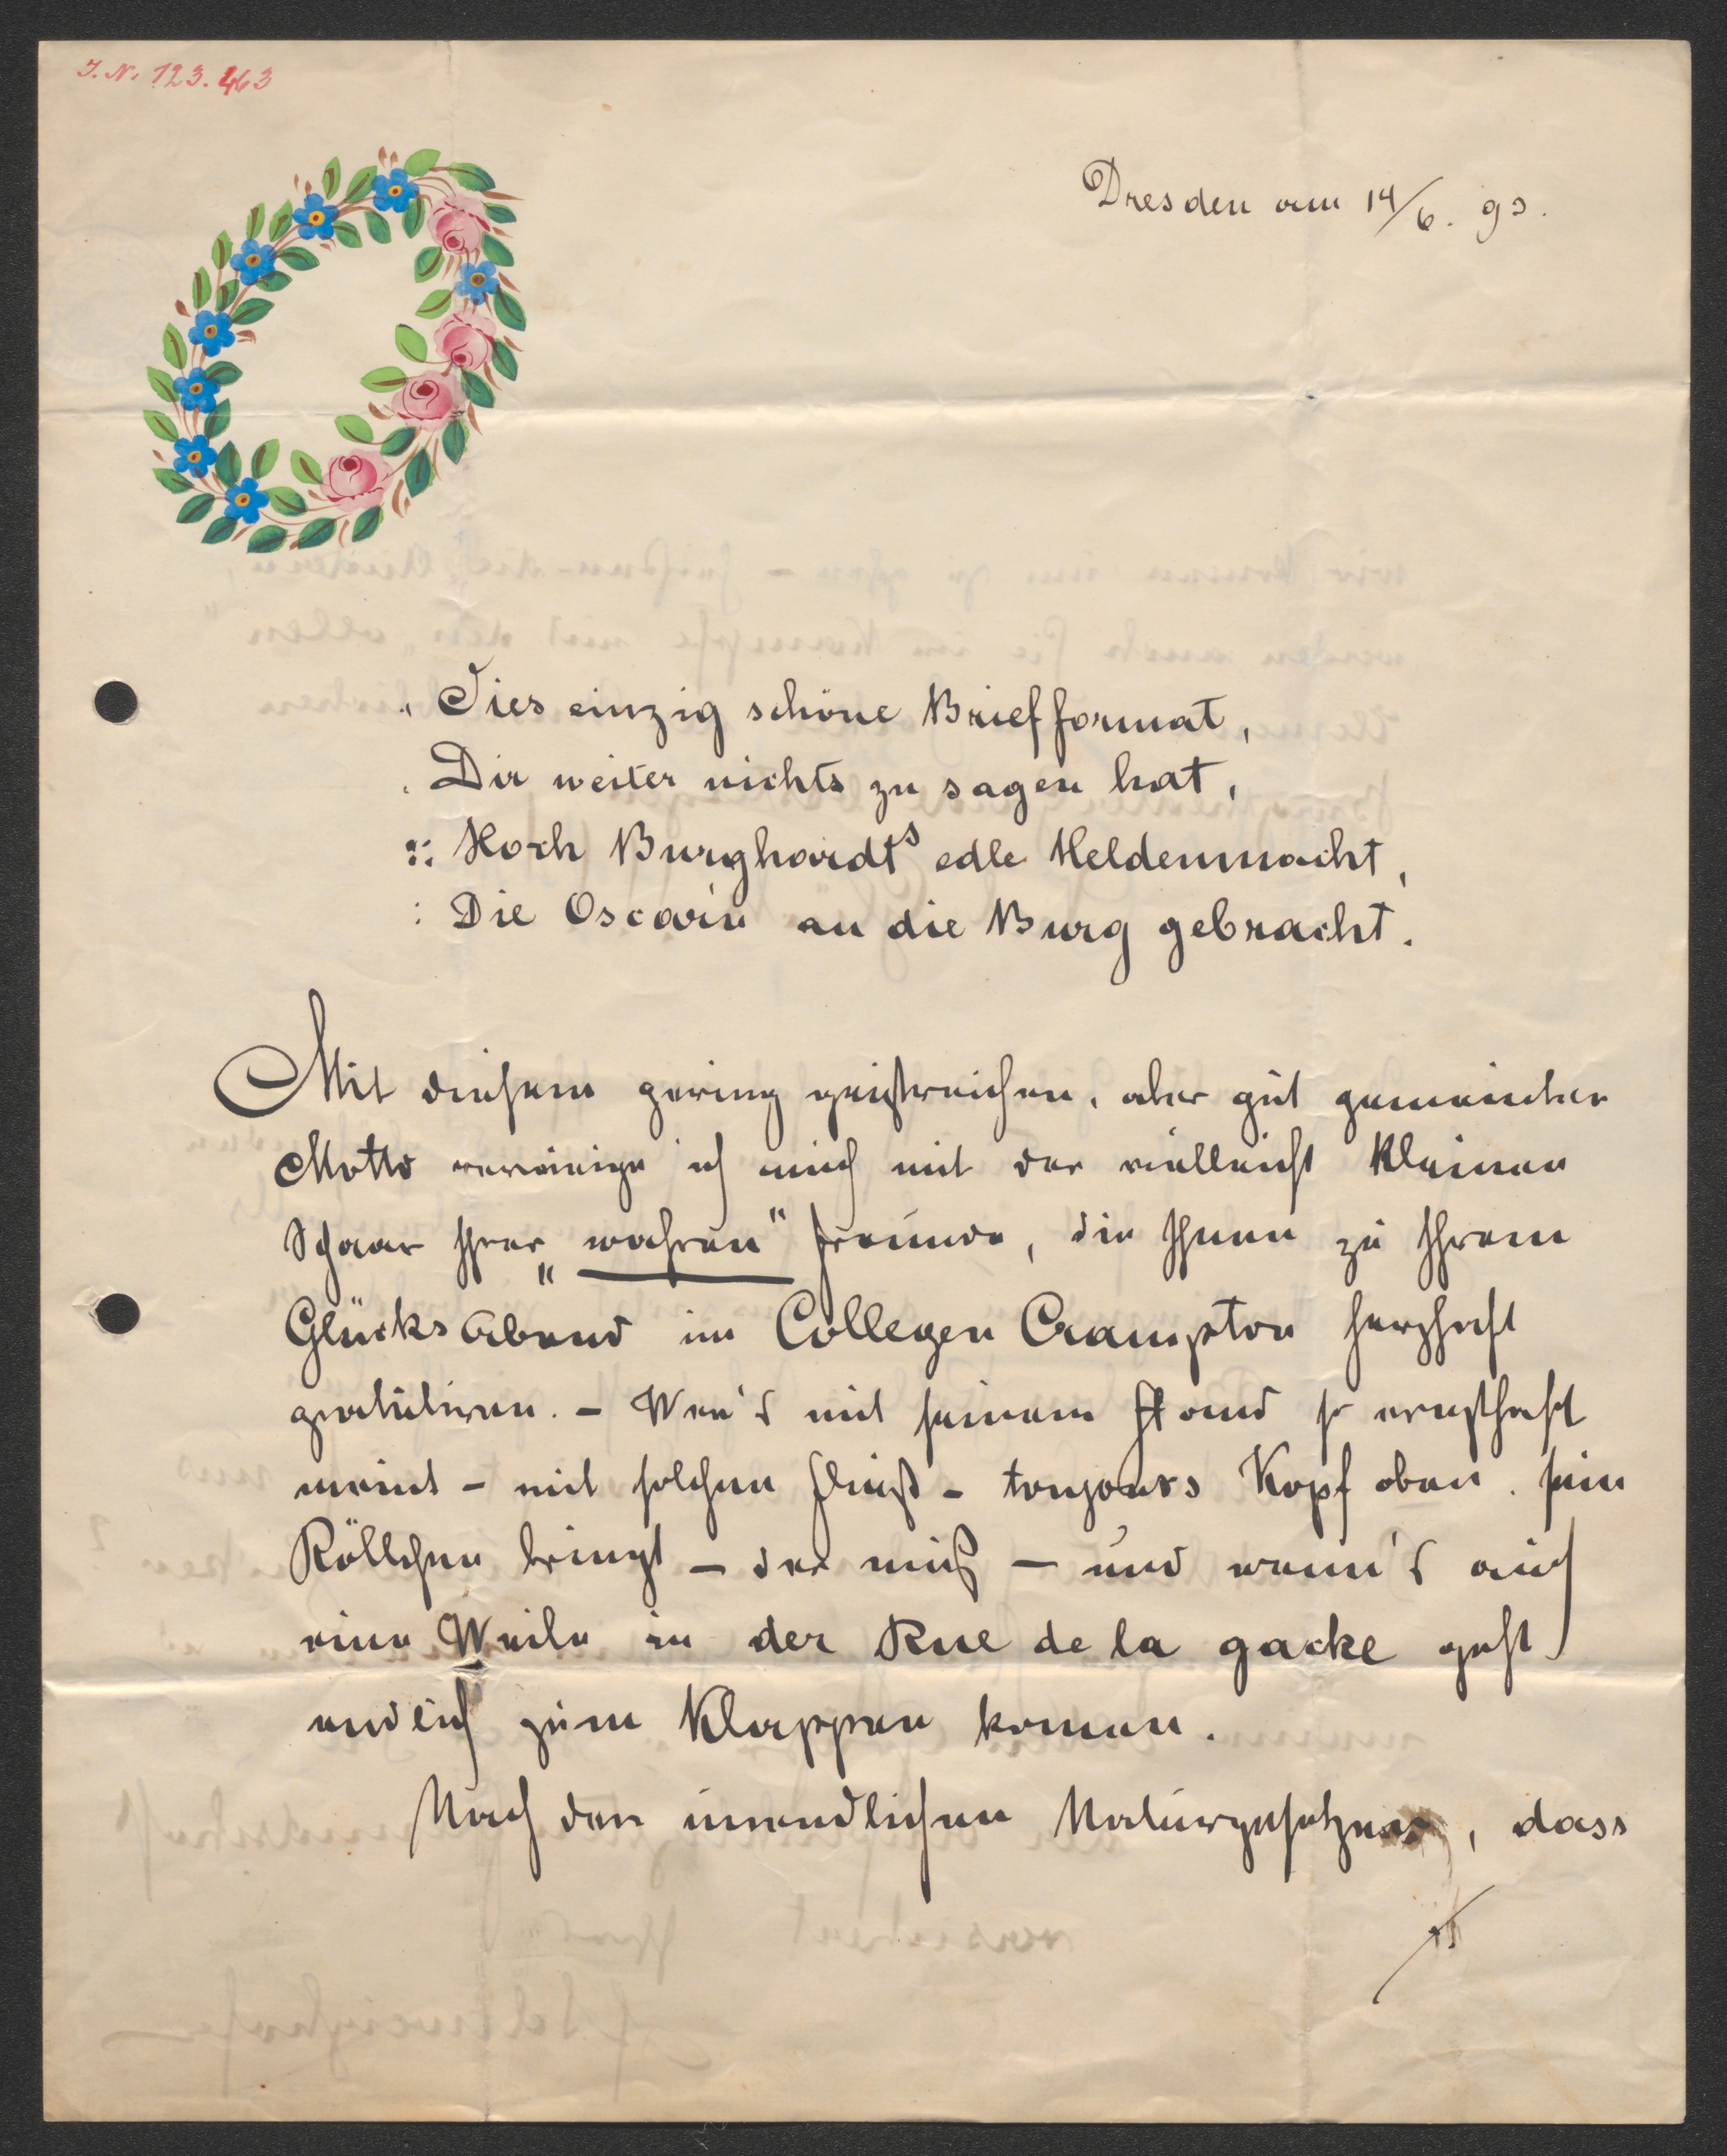 J. N. 123.463
Dresden am 14/6. 93.
Dies einzig schöne Briefformat,
Dir weiter nichts zu sagen hat,
Hoch Burghardts edle Heldenmacht,
Die Oscarin an die Burg gebracht.
Mit diesem gering geistreichen, aber gut gemeinten
Motto vereinige ich mich mit der vielleicht kleinen
Schaar Ihrer „wahren“ Freunde, die Ihnen zu Ihrem
Glücks Abend im Collegen Crampton herzhaft
gratuliren. – Wer's mit seinem Stand so ernsthaft
meint – mit solchen Fleiß – toujours Kopf oben. sein
Röllchen bringt – der muß – und wenn's auch
eine Weile in der Rue de la gacke geht
endlich zum Klappen komen.
Nach den unendlichen Naturgesetzen, dass